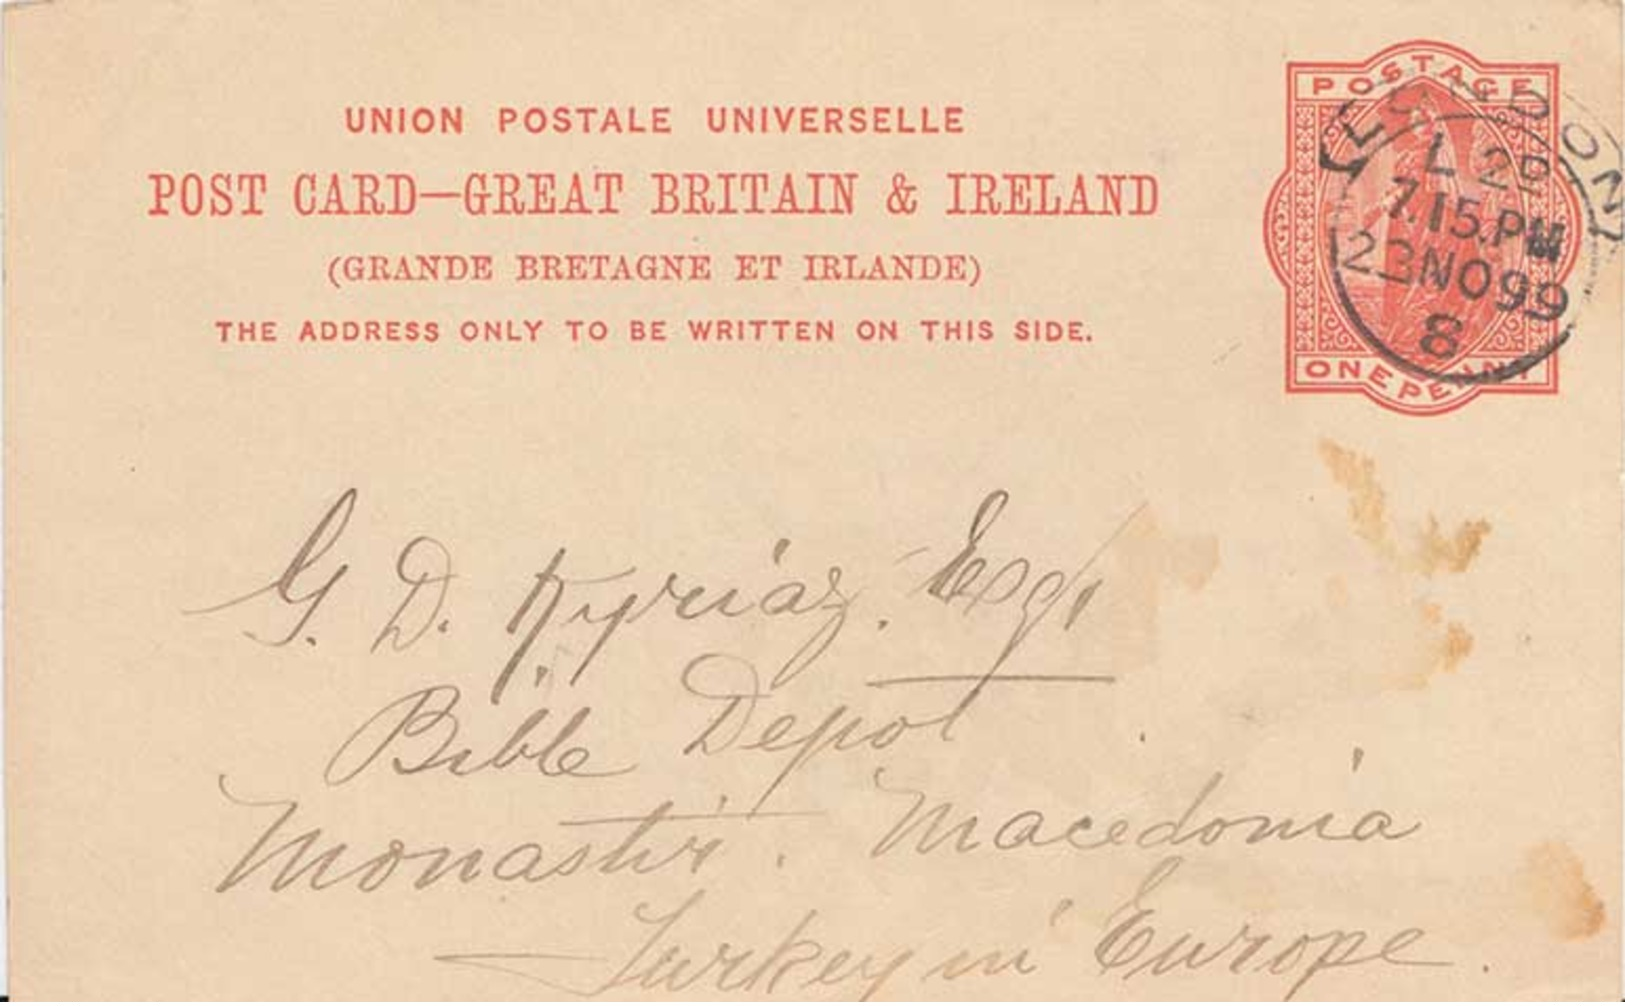 UNION POSTALE UNIVERSELLE
POST CARD—GREAT BRITAIN & IRELAND
(GRANDE BRETAGNE ET IRLANDE)
THE ADDRESS ONLY TO BE WRITTEN ON THIS SIDE.
POSTAGE
LONDON
7.15.PM
23NO99
8
ONE PENNY
G. D. Kyriaz. Esq,
Bible Depot
Monastir. Macedonia
Turkey in Europe.